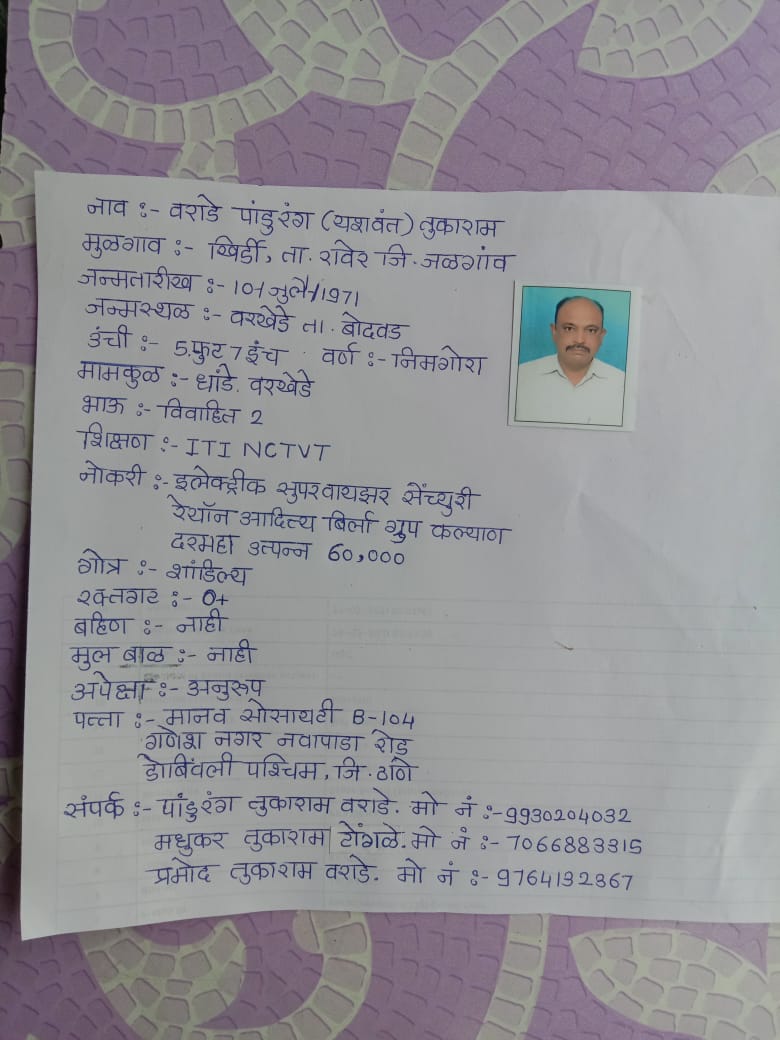 नाव :- वराडे पांडुरंग (यशवंत) तुकाराम
मुळगाव :- खिर्डी, ता. रावेर जि. जळगांव
जन्मतारीख :- 10/जुलै/1971
जन्मस्थळ :- वरखेडे ता. बोदवड
उंची :- 5.फुट 7 इंच वर्ण :- निमगोरा
मामकुळ :- धांडे. वरखेडे
भाऊ :- विवाहित 2
शिक्षण :- ITI NCTVT
नोकरी :- इलेक्ट्रीक सुपरवायझर सेंच्युरी
रेयॉन आदित्य बिर्ला ग्रुप कल्याण
दरमहा उत्पन्न 60,000
गोत्र :- शांडिल्य
रक्तगट :- O+
बहिण :- नाही
मुल बाळ :- नाही
अपेक्षा :- अनुरुप
पत्ता :- मानव सोसायटी B-104
गणेश नगर नवापाडा रोड
डोबिंवली पश्चिम, जि. ठाणे
संपर्क :- पांडुरंग तुकाराम वराडे. मो नं :- 9930204032
मधुकर तुकाराम टोंगळे. मो नं :- 7066883315
प्रमोद तुकाराम वराडे. मो नं :- 9764132367